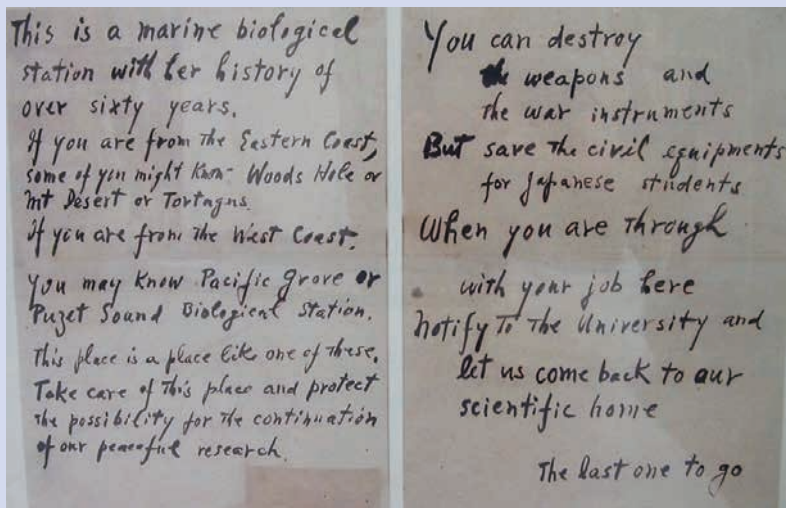 This is a marine biological
station with her history of
over sixty years.
If you are from the Eastern Coast,
some of you might know Woods Hole or
Mt Desert or Tortagus.
If you are from the West Coast.
You may know Pacific Grove or
Puzet Sound Biological Station.
This place is a place like one of these.
Take care of this place and protect
the possibility for the continuation
of our peaceful research.
You can destroy
the weapons and
the war instruments
But save the civil equipments
for Japanese students
When you are through
with your job here
notify to the University and
let us come back to our
scientific home
The last one to go